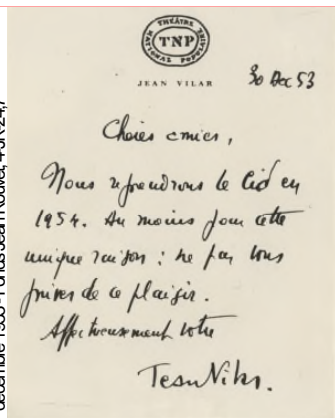 THÉÂTRE
NATIONAL POPULAIRE
TNP
JEAN VILAR
30 Dec 53
Chères amies,
Nous reprendrons le Cid en
1954. Au moins pour cette
unique raison : ne pas vous
priver de ce plaisir.
Affectueusement votre
Jean Vilar.